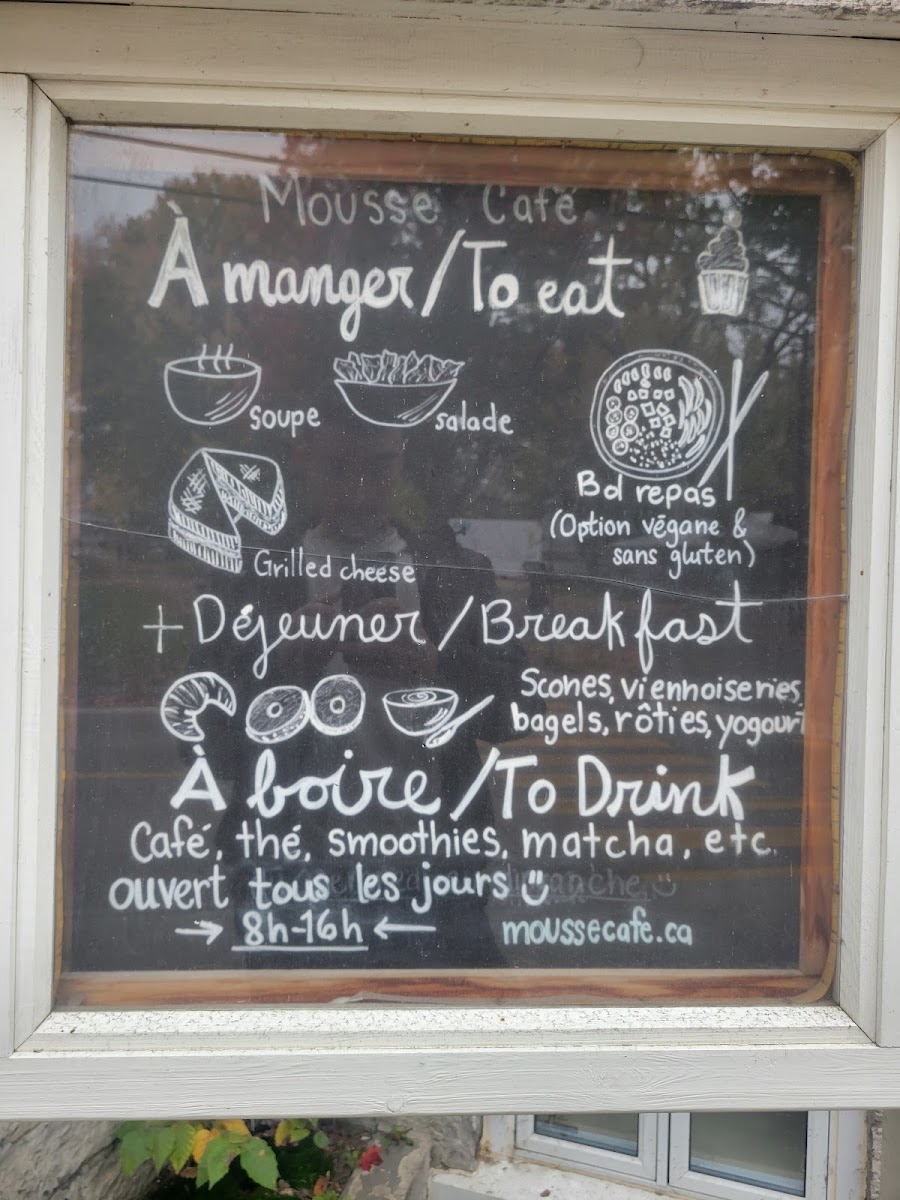 Mousse Café
À manger / To eat
soupe
salade
Bol repas
(Option végane &
sans gluten)
Grilled cheese
+ Déjeuner / Breakfast
Scones, viennoiseries,
bagels, rôties, yogourt
À boire / To Drink
Café, thé, smoothies, matcha, etc.
ouvert tous les jours
→ 8h-16h ←
moussecafe.ca